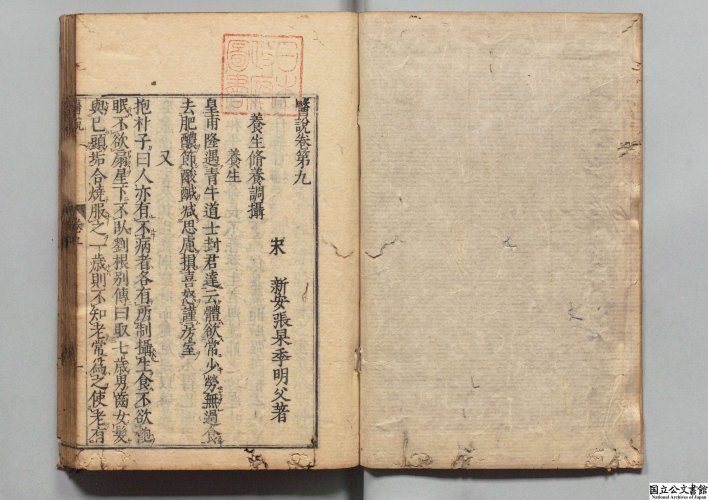 醫說卷第九
宋 新安張杲季明父著
養生脩養調攝
養生
皇甫隆遇青牛道士封君達云體欲常少勞無過食
去肥醲節酸鹹減思慮損喜怒謹房室
又
抱朴子曰人亦有不病者各有所制攝生食不欲飽
眠不欲扇星下不臥劉根別傳曰取七歲男齒女髮
與已頭垢合燒服之一歲則不知老常爲之使老有
国立公文書館
National Archives of Japan